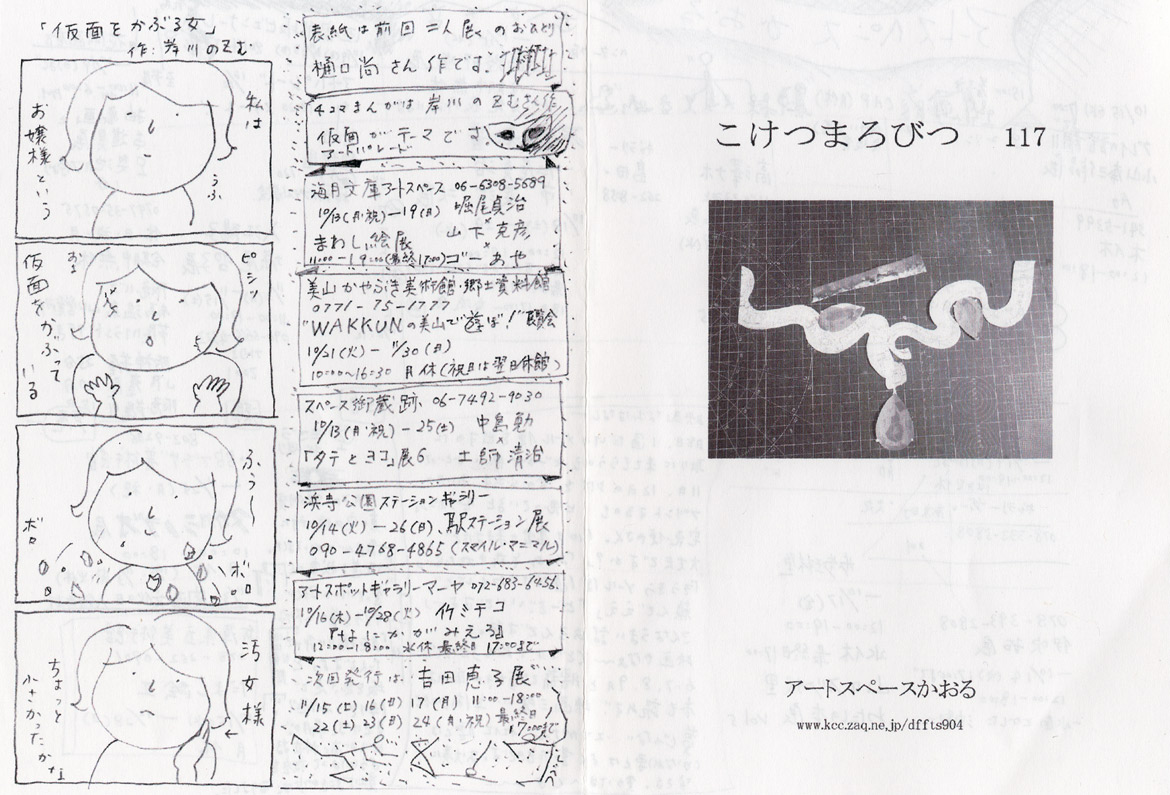 「仮面をかぶる女」
作:岸川のぞむ
私は
うふ
お嬢様という
ピシッ
おっ
仮面をかぶって
いる
ふぅ
ボロ
ボロ
汚女様
ちょっと
小さかったかな
表紙は前回 二人展 のおみどり
樋口尚さん作です。
4コマまんがは岸川のぞむさん作
仮面がテーマです
アートパレード
海月文庫アートスペース 06-6308-5689
10/13(月・祝)-19(日) 堀尾貞治
山下克彦
×
まわし絵展
11:00-19:00(最終17:00)ゴーあや
美山かやぶき美術館・郷土資料館
0771-75-1777
"WAKKUNの美山で遊ぼ!"展覧会
10/21(火)-11/30(日)
10:00~16:30 月休(祝日は翌日休館)
スペース御蔵跡 06-7492-9030
10/13(月・祝)-25(土) 中島勉
×
「タテとヨコ」展6 土師清治
浜寺公園ステーションギャラリー
10/14(火)-26(日)、駅ステーション展
090-4768-4865(スマイル・マニマル)
アートスポットギャラリーマーヤ 072-683-6456
10/16(木)-10/28(火) 竹ミチコ
12:00-18:00 水休 最終日17:00まで
次回発行は 吉田恵子展
11/15(土)16(日)17(月)11:00-18:00
22(土)23(日)24(月・祝)最終日
17:00まで
こけつまろびつ 117
アートスペースかおる
www.kcc.zaq.ne.jp/dffts904